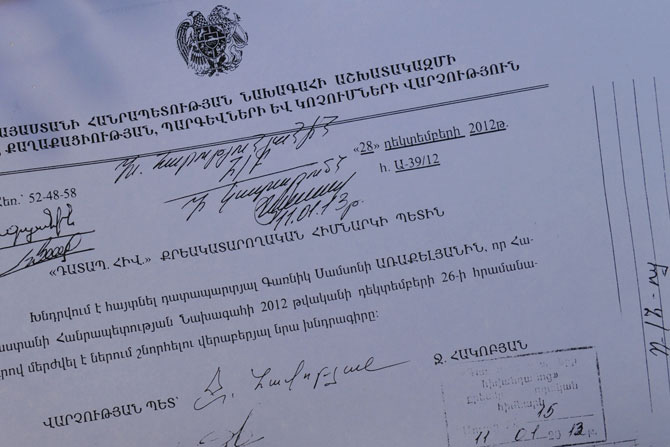 ԱՅԱՍՏԱՆԻ ՀԱՆՐԱՊԵՏՈՒԹՅԱՆ ՆԱԽԱԳԱՀԻ ԱՇԽԱՏԱԿԱԶՄԻ
ՔԱՂԱՔԱՑԻՈՒԹՅԱՆ, ՊԱՐԳԵՎՆԵՐԻ ԵՎ ԿՈՉՈՒՄՆԵՐԻ ՎԱՐՉՈՒԹՅՈՒՆ
«28» դեկտեմբերի 2012թ.
հ. Ա-39/12
Հեռ.՝ 52-48-58
11.01.13թ
«ԴԱՏԱՊ. ՀԻՎ.» ՔՐԵԱԿԱՏԱՐՈՂԱԿԱՆ ՀԻՄՆԱՐԿԻ ՊԵՏԻՆ
Խնդրվում է հայտնել դատապարտյալ Գառնիկ Սամսոնի ԱՌԱՔԵԼՅԱՆԻՆ, որ Հա-
աստանի Հանրապետության Նախագահի 2012 թվականի դեկտեմբերի 26-ի հրամանա-
րով մերժվել է ներում շնորհելու վերաբերյալ նրա խնդրագիրը:
ՎԱՐՉՈՒԹՅԱՆ ՊԵՏ՝
Ջ. ՀԱԿՈԲՅԱՆ
15
11 01 2013թ.